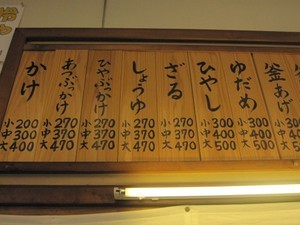 かけ
小 200
中 300
大 400
あつぶっかけ
小 270
中 370
大 470
ひやぶっかけ
小 270
中 370
大 470
しょうゆ
小 270
中 370
大 470
ざる
小 270
中 370
大 470
ひやし
小 300
中 400
大 500
ゆだめ
小 300
中 400
大 500
釜あげ
小 300
中 400
大 500